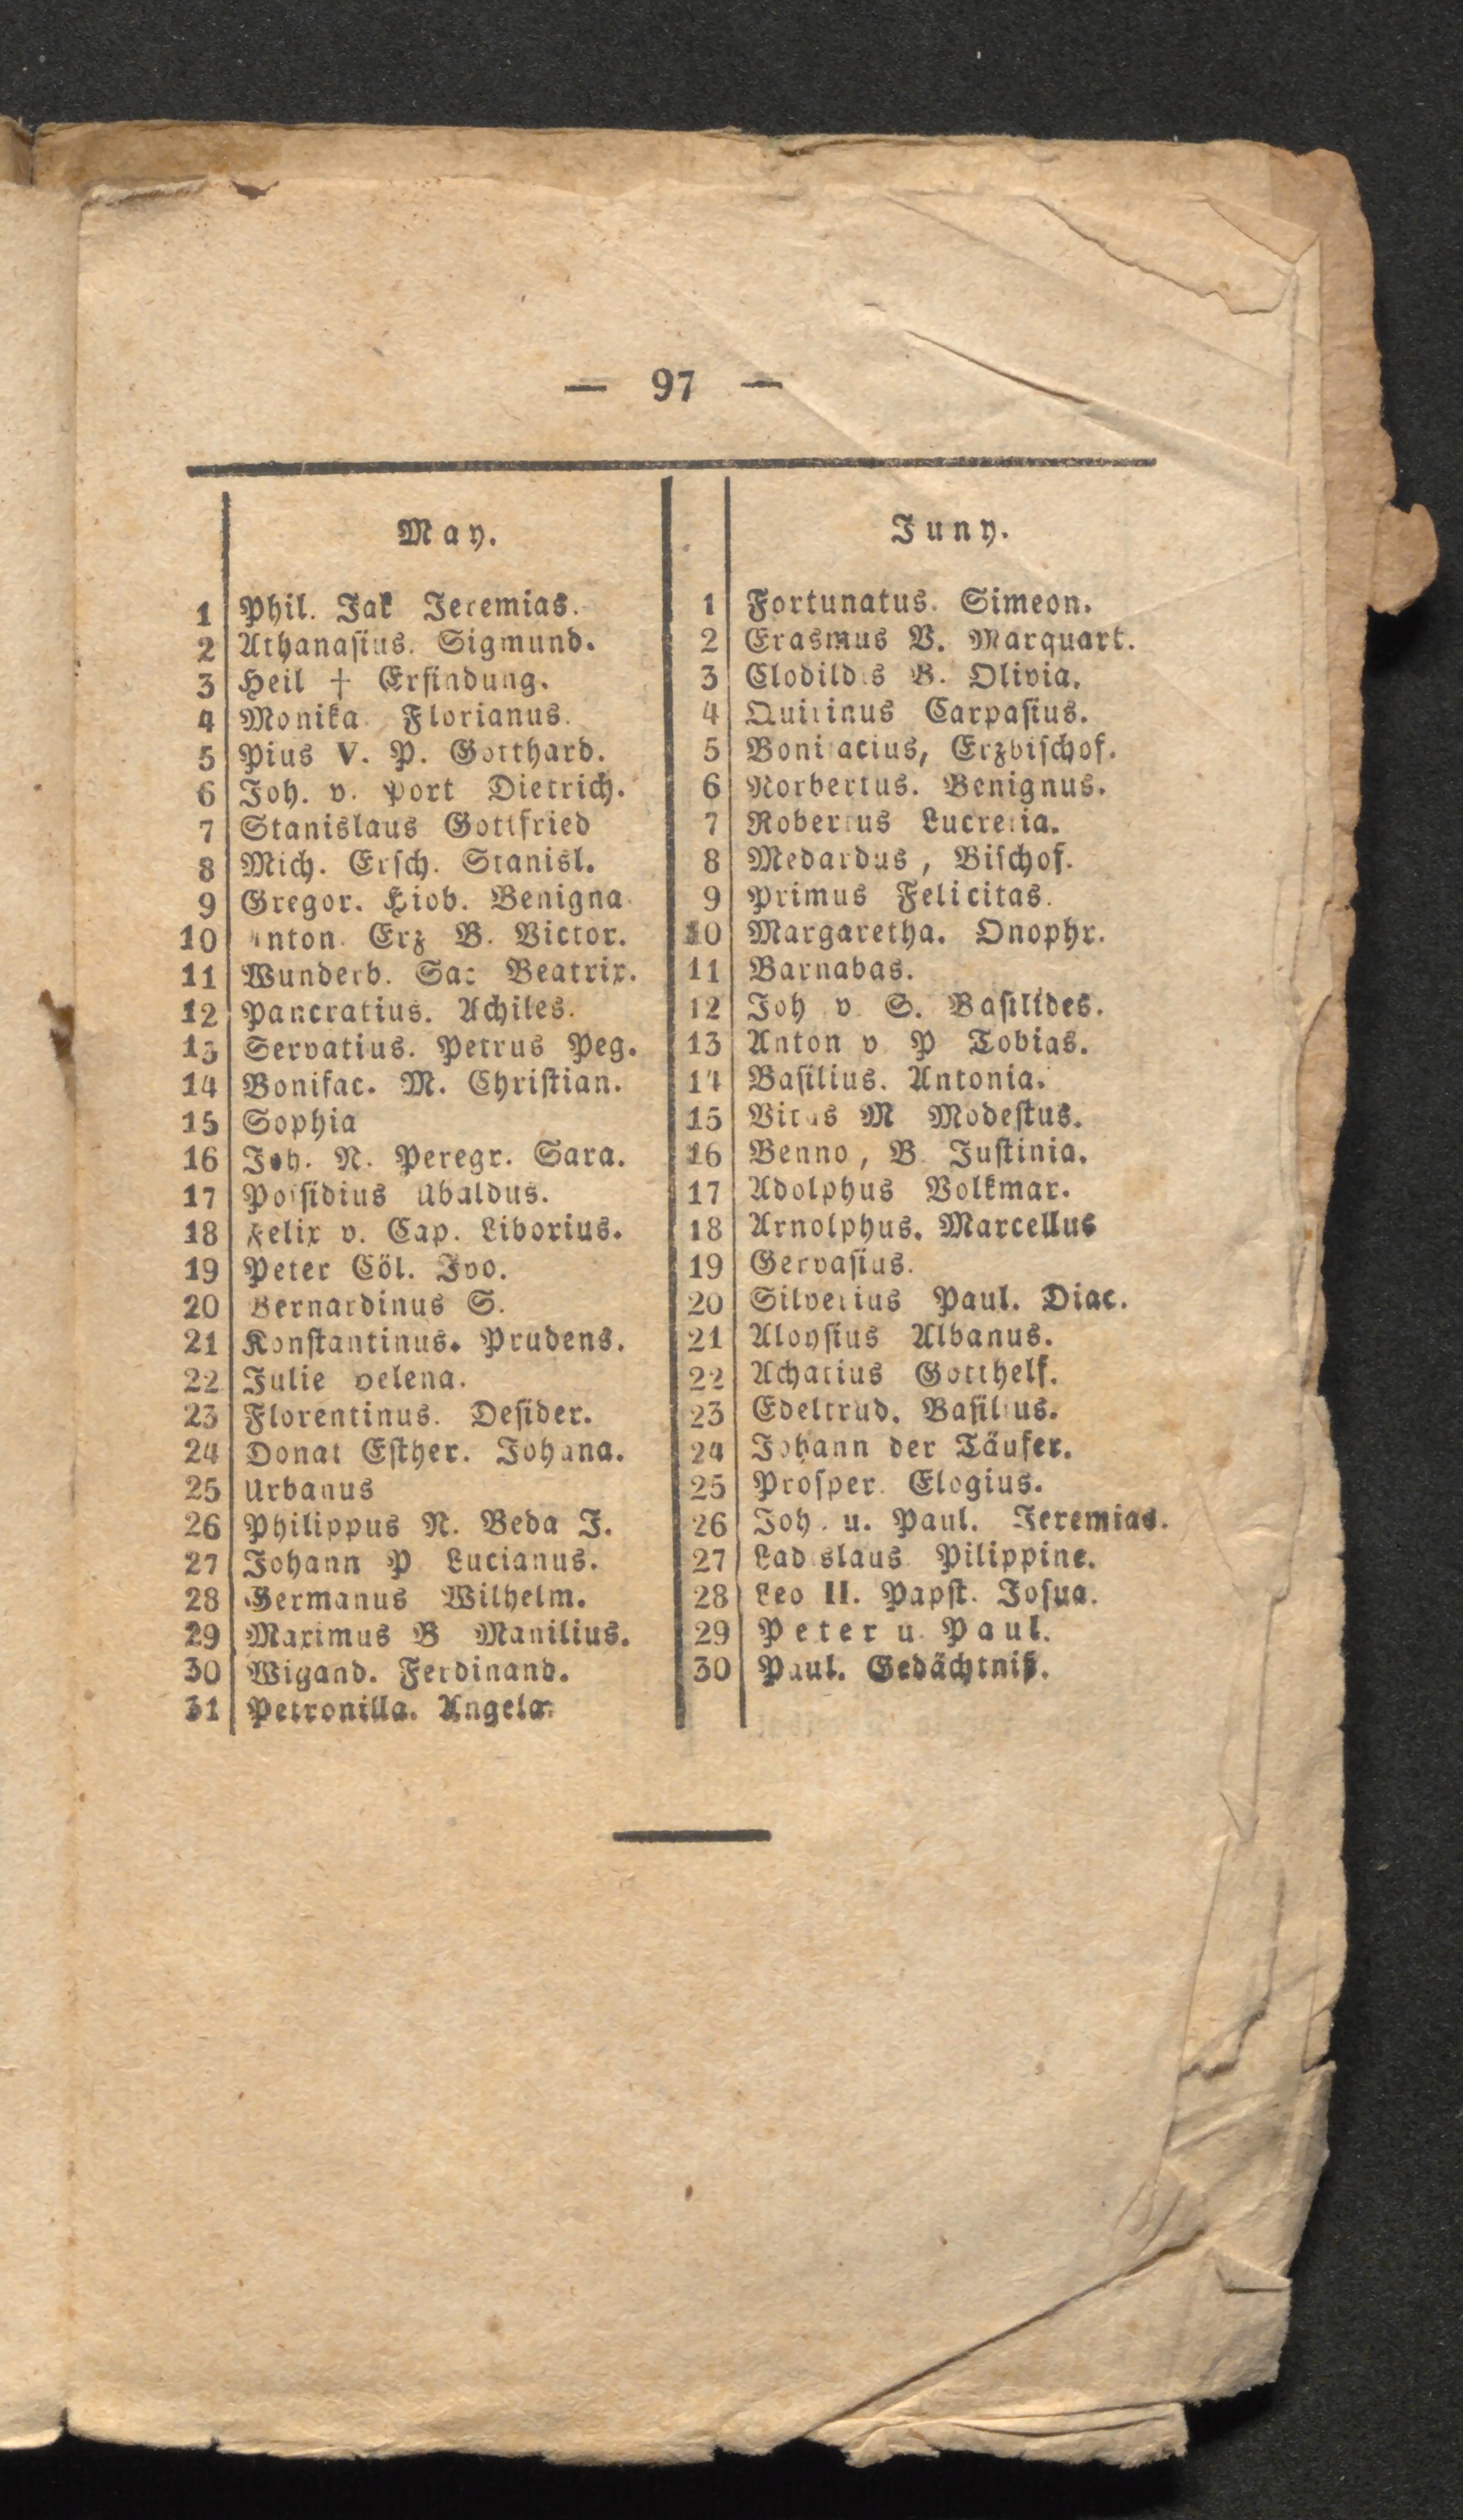 — 97 —
May.
1 Phil. Jak Jeremias.
2 Athanaſius. Sigmund.
3 Heil † Erfindung.
4 Monika Florianus.
5 Pius V. P. Gotthard.
6 Joh. v. Port Dietrich.
7 Stanislaus Gottfried
8 Mich. Erſch. Stanisl.
9 Gregor. Hiob. Benigna.
10 Anton. Erz B. Victor.
11 Wunderb. Sac Beatrix.
12 Pancratius. Achiles.
13 Servatius. Petrus Peg.
14 Bonifac. M. Chriſtian.
15 Sophia
16 Joh. N. Peregr. Sara.
17 Poſſidius Ubaldus.
18 Felix v. Cap. Liborius.
19 Peter Cöl. Ivo.
20 Bernardinus S.
21 Konſtantinus. Prudens.
22 Julie Helena.
23 Florentinus. Deſider.
24 Donat Eſther. Johana.
25 Urbanus
26 Philippus N. Beda J.
27 Johann P Lucianus.
28 Germanus Wilhelm.
29 Maximus B Manilius.
30 Wigand. Ferdinand.
31 Petronilla. Angela.
Juny.
1 Fortunatus. Simeon.
2 Erasmus B. Marquart.
3 Clodildis B. Olivia.
4 Quirinus Carpaſius.
5 Bonifacius, Erzbiſchof.
6 Norbertus. Benignus.
7 Robertus Lucretia.
8 Medardus, Biſchof.
9 Primus Felicitas.
10 Margaretha. Onophr.
11 Barnabas.
12 Joh v. S. Baſilides.
13 Anton v P Tobias.
14 Baſilius. Antonia.
15 Vitus M Modeſtus.
16 Benno, B. Juſtinia.
17 Adolphus Volkmar.
18 Arnolphus. Marcellus
19 Gervaſius.
20 Silverius Paul. Diac.
21 Aloyſius Albanus.
22 Achatius Gotthelf.
23 Edeltrud. Baſilius.
24 Johann der Täufer.
25 Proſper. Elogius.
26 Joh. u. Paul. Jeremias.
27 Ladislaus Pilippine.
28 Leo II. Papſt. Joſua.
29 Peter u. Paul.
30 Paul. Gedächtniß.